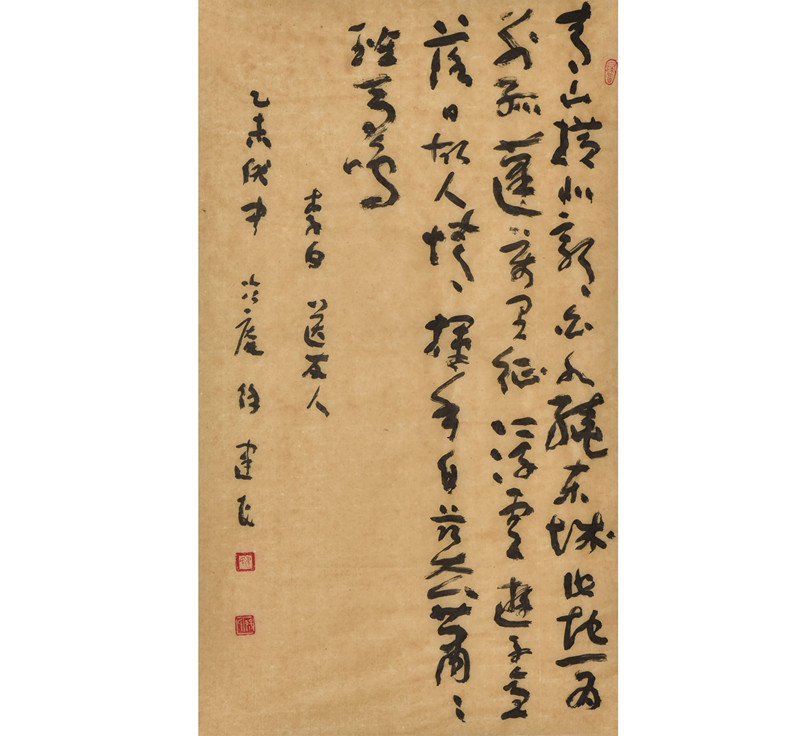 青山橫北郭白水繞東城此地一為
別孤蓬萬里征浮雲遊子意
落日故人情揮手自茲去蕭〻
班馬鳴
李白 送友人
乙未 中 冷庵 徐建民